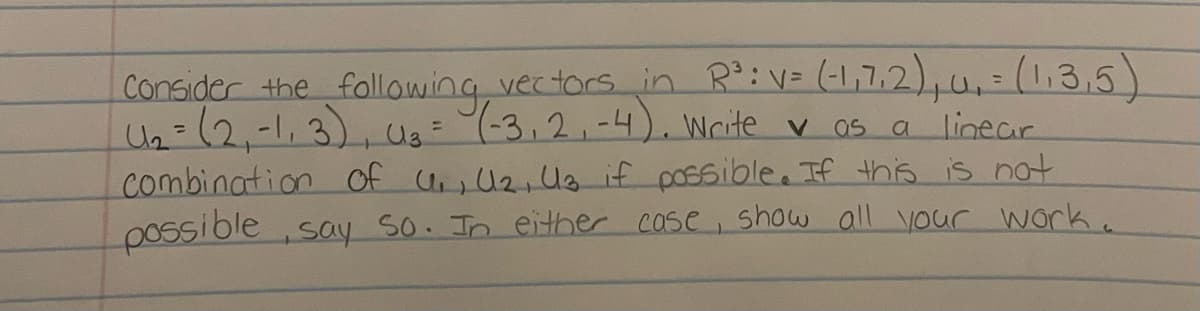 Consider the following vectors in R³: v= (-1,7,2), u₁ = (1,3,5)
u₂ = (2,-1,3), u₃ = (-3,2,-4). Write v as a linear
combination of u₁, u₂, u₃ if possible. If this is not
possible, say so. In either case, show all your work.